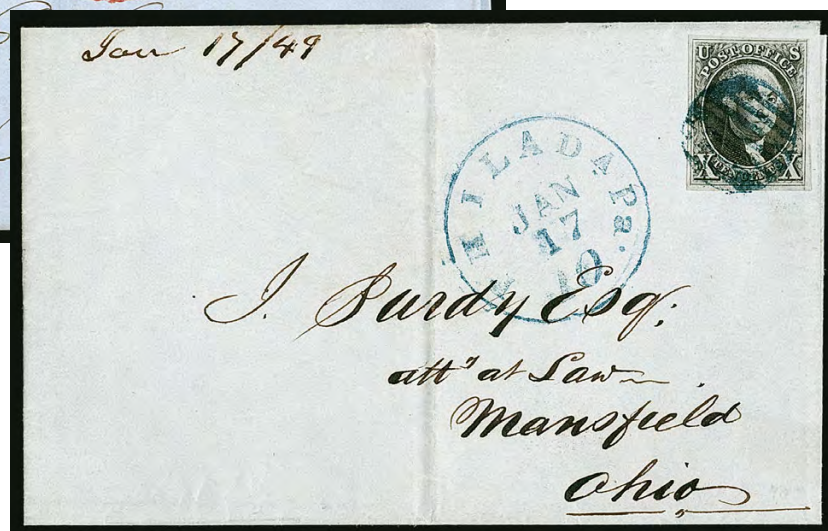 Jan 17/49
U S
POST OFFICE
X TEN CENTS X
PHILADA Pa.
JAN
17
10
J. Purdy Esq:
atty at Law
Mansfield
Ohio